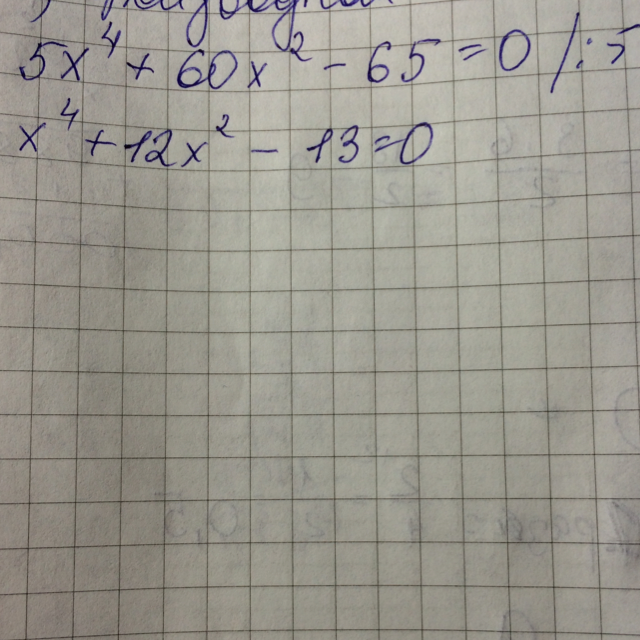 5x⁴ + 60x² - 65 = 0 /:5
x⁴ + 12x² - 13 = 0